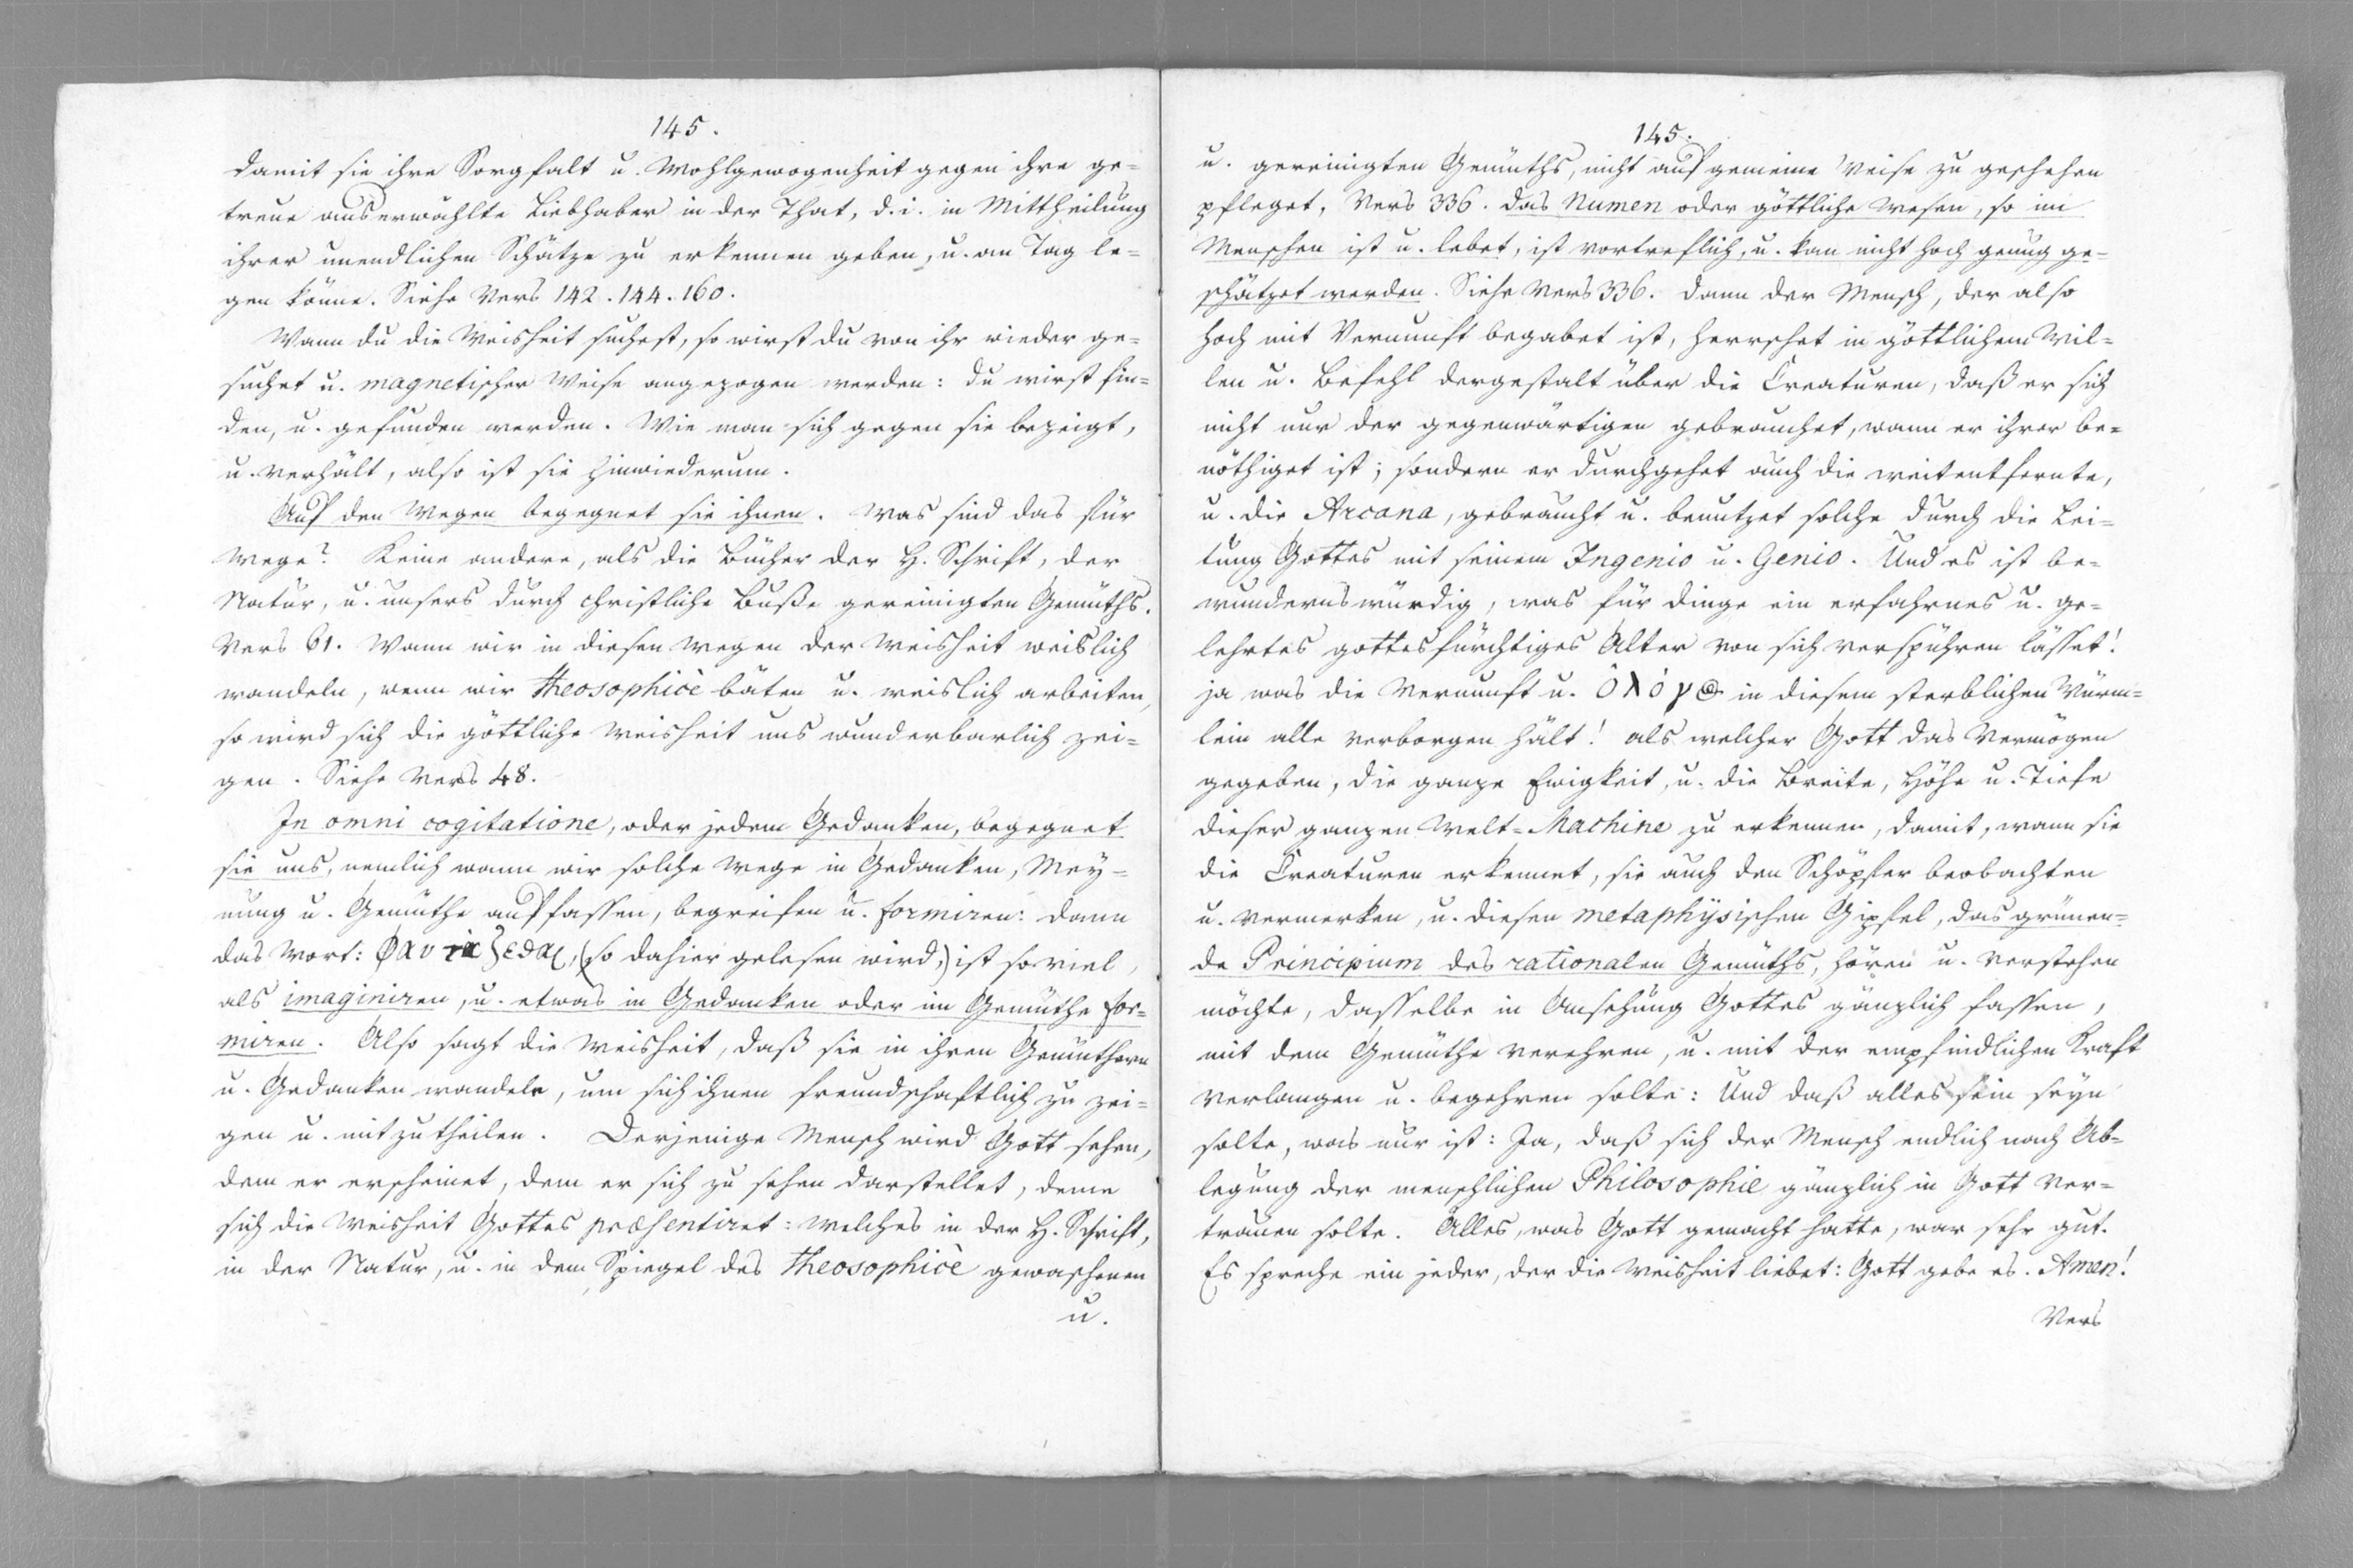 145.
damit sie ihre Sorgfalt u. Wohlgewogenheit gegen ihre ge=
treue auserwählte Liebhaber in der That, d. i. in Mittheilung
ihrer unendlichen Schätze zu erkennen geben, u. an Tag le=
gen könne. Siehe Vers 142. 144. 160.
Wann du die Weisheit suchest, so wirst du von ihr wieder ge=
suchet u. magnetischer Weise angezogen werden: du wirst fin=
den, u. gefunden werden. Wie man sich gegen sie bezeigt,
u. verhält, also ist sie hinwiederum.
Auf den Wegen begegnet sie ihnen. Was sind das für
Wege? Keine andere, als die Bücher der H. Schrift, der
Natur, u. unsers durch christliche Buße gereinigten Gemüths.
Vers 61. Wann wir in diesen Wegen der Weisheit weislich
wandeln, wenn wir theosophicè bäten u. weislich arbeiten,
so wird sich die göttliche Weisheit uns wunderbarlich zei=
gen. Siehe Vers 48.
In omni cogitatione, oder jedem Gedanken, begegnet
sie uns, nemlich wann wir solche Wege in Gedanken, Mey=
nung u. Gemüthe auffassen, begreifen u. formiren: dann
das Wort: (so dahier gelesen wird,) ist so viel,
als imaginiren, u. etwas in Gedanken oder im Gemüthe for=
miren. Also sagt die Weisheit, daß sie in ihren Gemüthern
u. Gedanken wandele, um sich ihnen freundschaftlich zu zei=
gen u. mitzutheilen. Derjenige Mensch wird Gott sehen,
dem er erscheinet, dem er sich zu sehen darstellet, deme
sich die Weisheit Gottes præsentiret: welches in der H. Schrift,
in der Natur, u. in dem Spiegel des theosophicè gewaschenen
u.
145.
u. gereinigten Gemüths, nicht auf gemeine Weise zu geschehen
pfleget. Vers 336. Das Numen oder göttliche Wesen, so im
Menschen ist u. lebet, ist vortreflich, u. kan nicht hoch genug ge=
schätzet werden. Siehe Vers 336. Dann der Mensch, der also
hoch mit Vernunft begabet ist, herrschet in göttlichem Wil=
len u. Befehl dergestalt über die Creaturen, daß er sich
nicht nur der gegenwärtigen gebrauchet, wann er ihrer be=
nöthiget ist; sondern er durchgehet auch die weit entfernte,
u. die Arcana, gebraucht u. benutzet solche durch die Lei=
tung Gottes mit seinem Ingenio u. Genio. Und es ist be=
wundernswürdig, was für Dinge ein erfahrnes u. ge=
lehrtes gottesfürchtiges Alter von sich verspühren lässet!
ja was die Vernunft u. ὁ λόγος in diesem sterblichen Würm=
lein alle verborgen hält! als welcher Gott das Vermögen
gegeben, die ganze Ewigkeit, u. die Breite, Höhe u. Tiefe
dieser ganzen Welt=Machine zu erkennen, damit, wann sie
die Creaturen erkennet, sie auch den Schöpfer beobachten
u. vermerken, u. diesen metaphysischen Gipfel, das grünen=
de Principium des rationalen Gemüths, hören u. verstehen
möchte, dasselbe in Ansehung Gottes gänzlich fassen,
mit dem Gemüthe verehren, u. mit der empfindlichen Kraft
verlangen u. begehren solte: Und daß alles sein seyn
solte, was nur ist: Ja, daß sich der Mensch endlich nach Ab=
legung der menschlichen Philosophie gänzlich in Gott ver=
trauen solte. Alles, was Gott gemacht hatte, war sehr gut.
Es spreche ein jeder, der die Weisheit liebet: Gott gebe es. Amen!
Vers